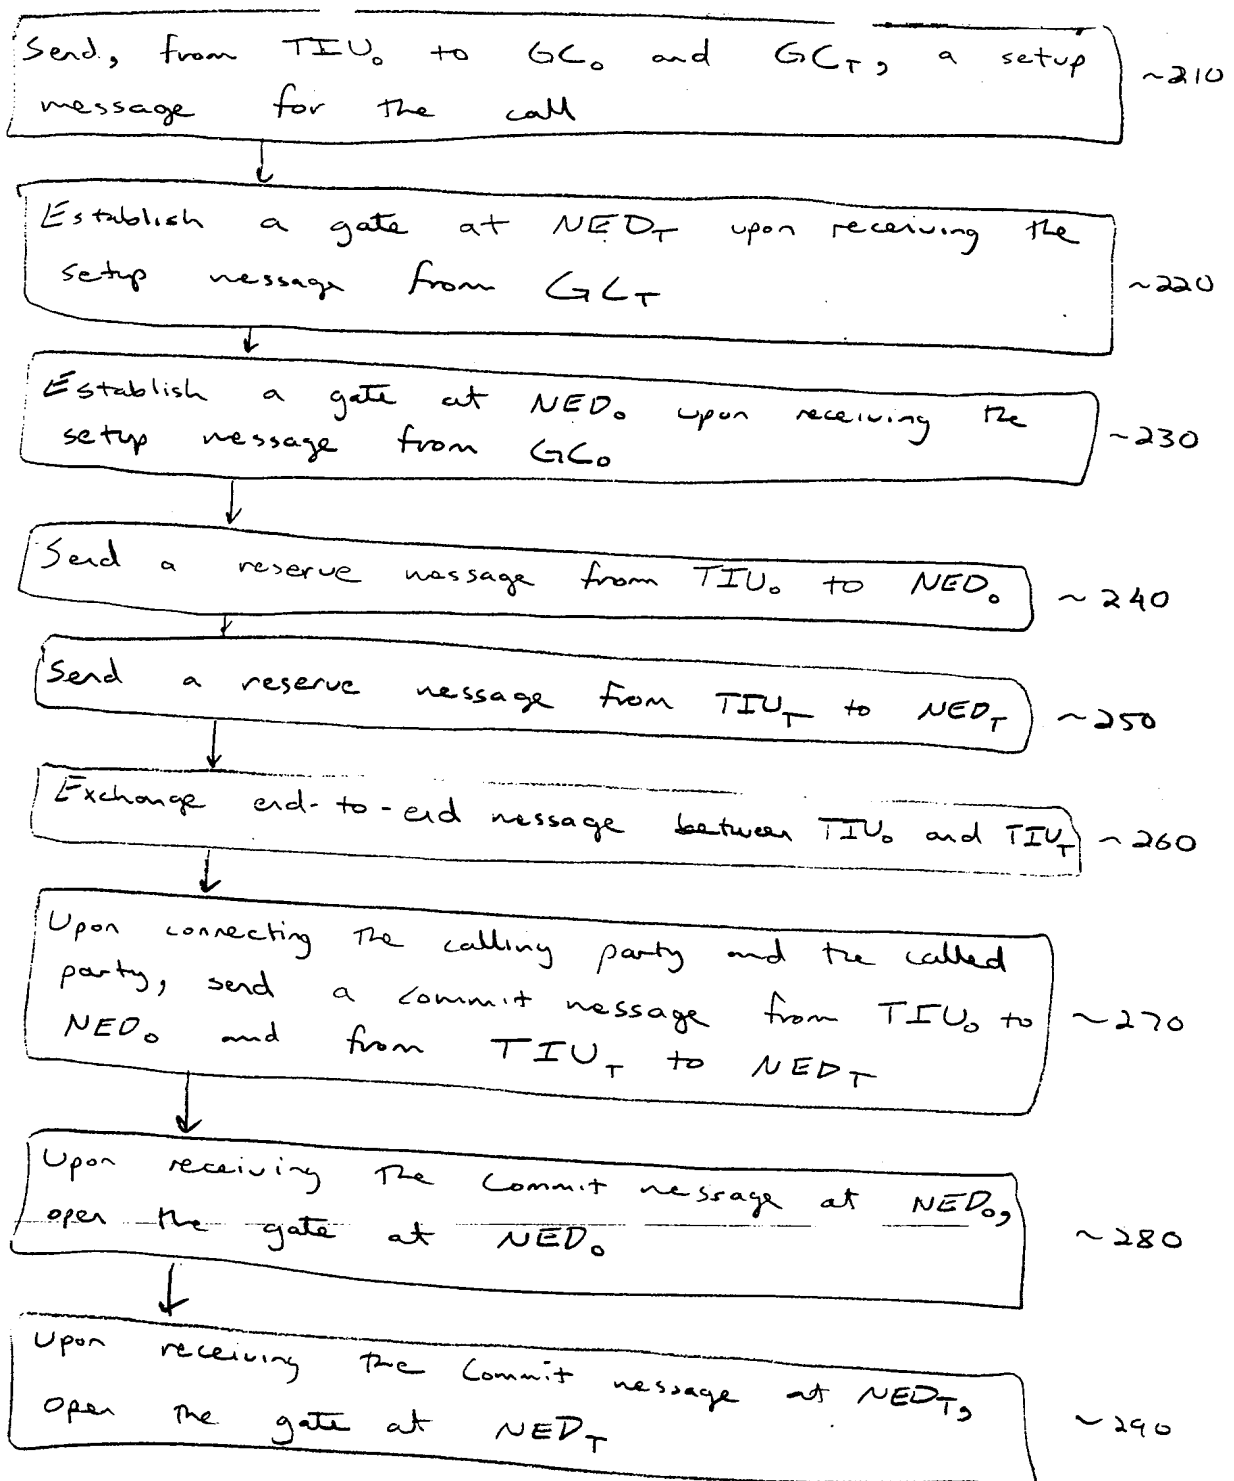 Send, from TIU₀ to GC₀ and GC_T, a setup ~210
message for the call
Establish a gate at NED_T upon receiving the
setup message from GC_T ~220
Establish a gate at NED₀ upon receiving the
setup message from GC₀ ~230
Send a reserve message from TIU₀ to NED₀ ~240
Send a reserve message from TIU_T to NED_T ~250
Exchange end-to-end message between TIU₀ and TIU_T ~260
Upon connecting the calling party and the called
party, send a commit message from TIU₀ to ~270
NED₀ and from TIU_T to NED_T
Upon receiving the Commit message at NED₀,
open the gate at NED₀ ~280
Upon receiving the Commit message at NED_T,
open the gate at NED_T ~290